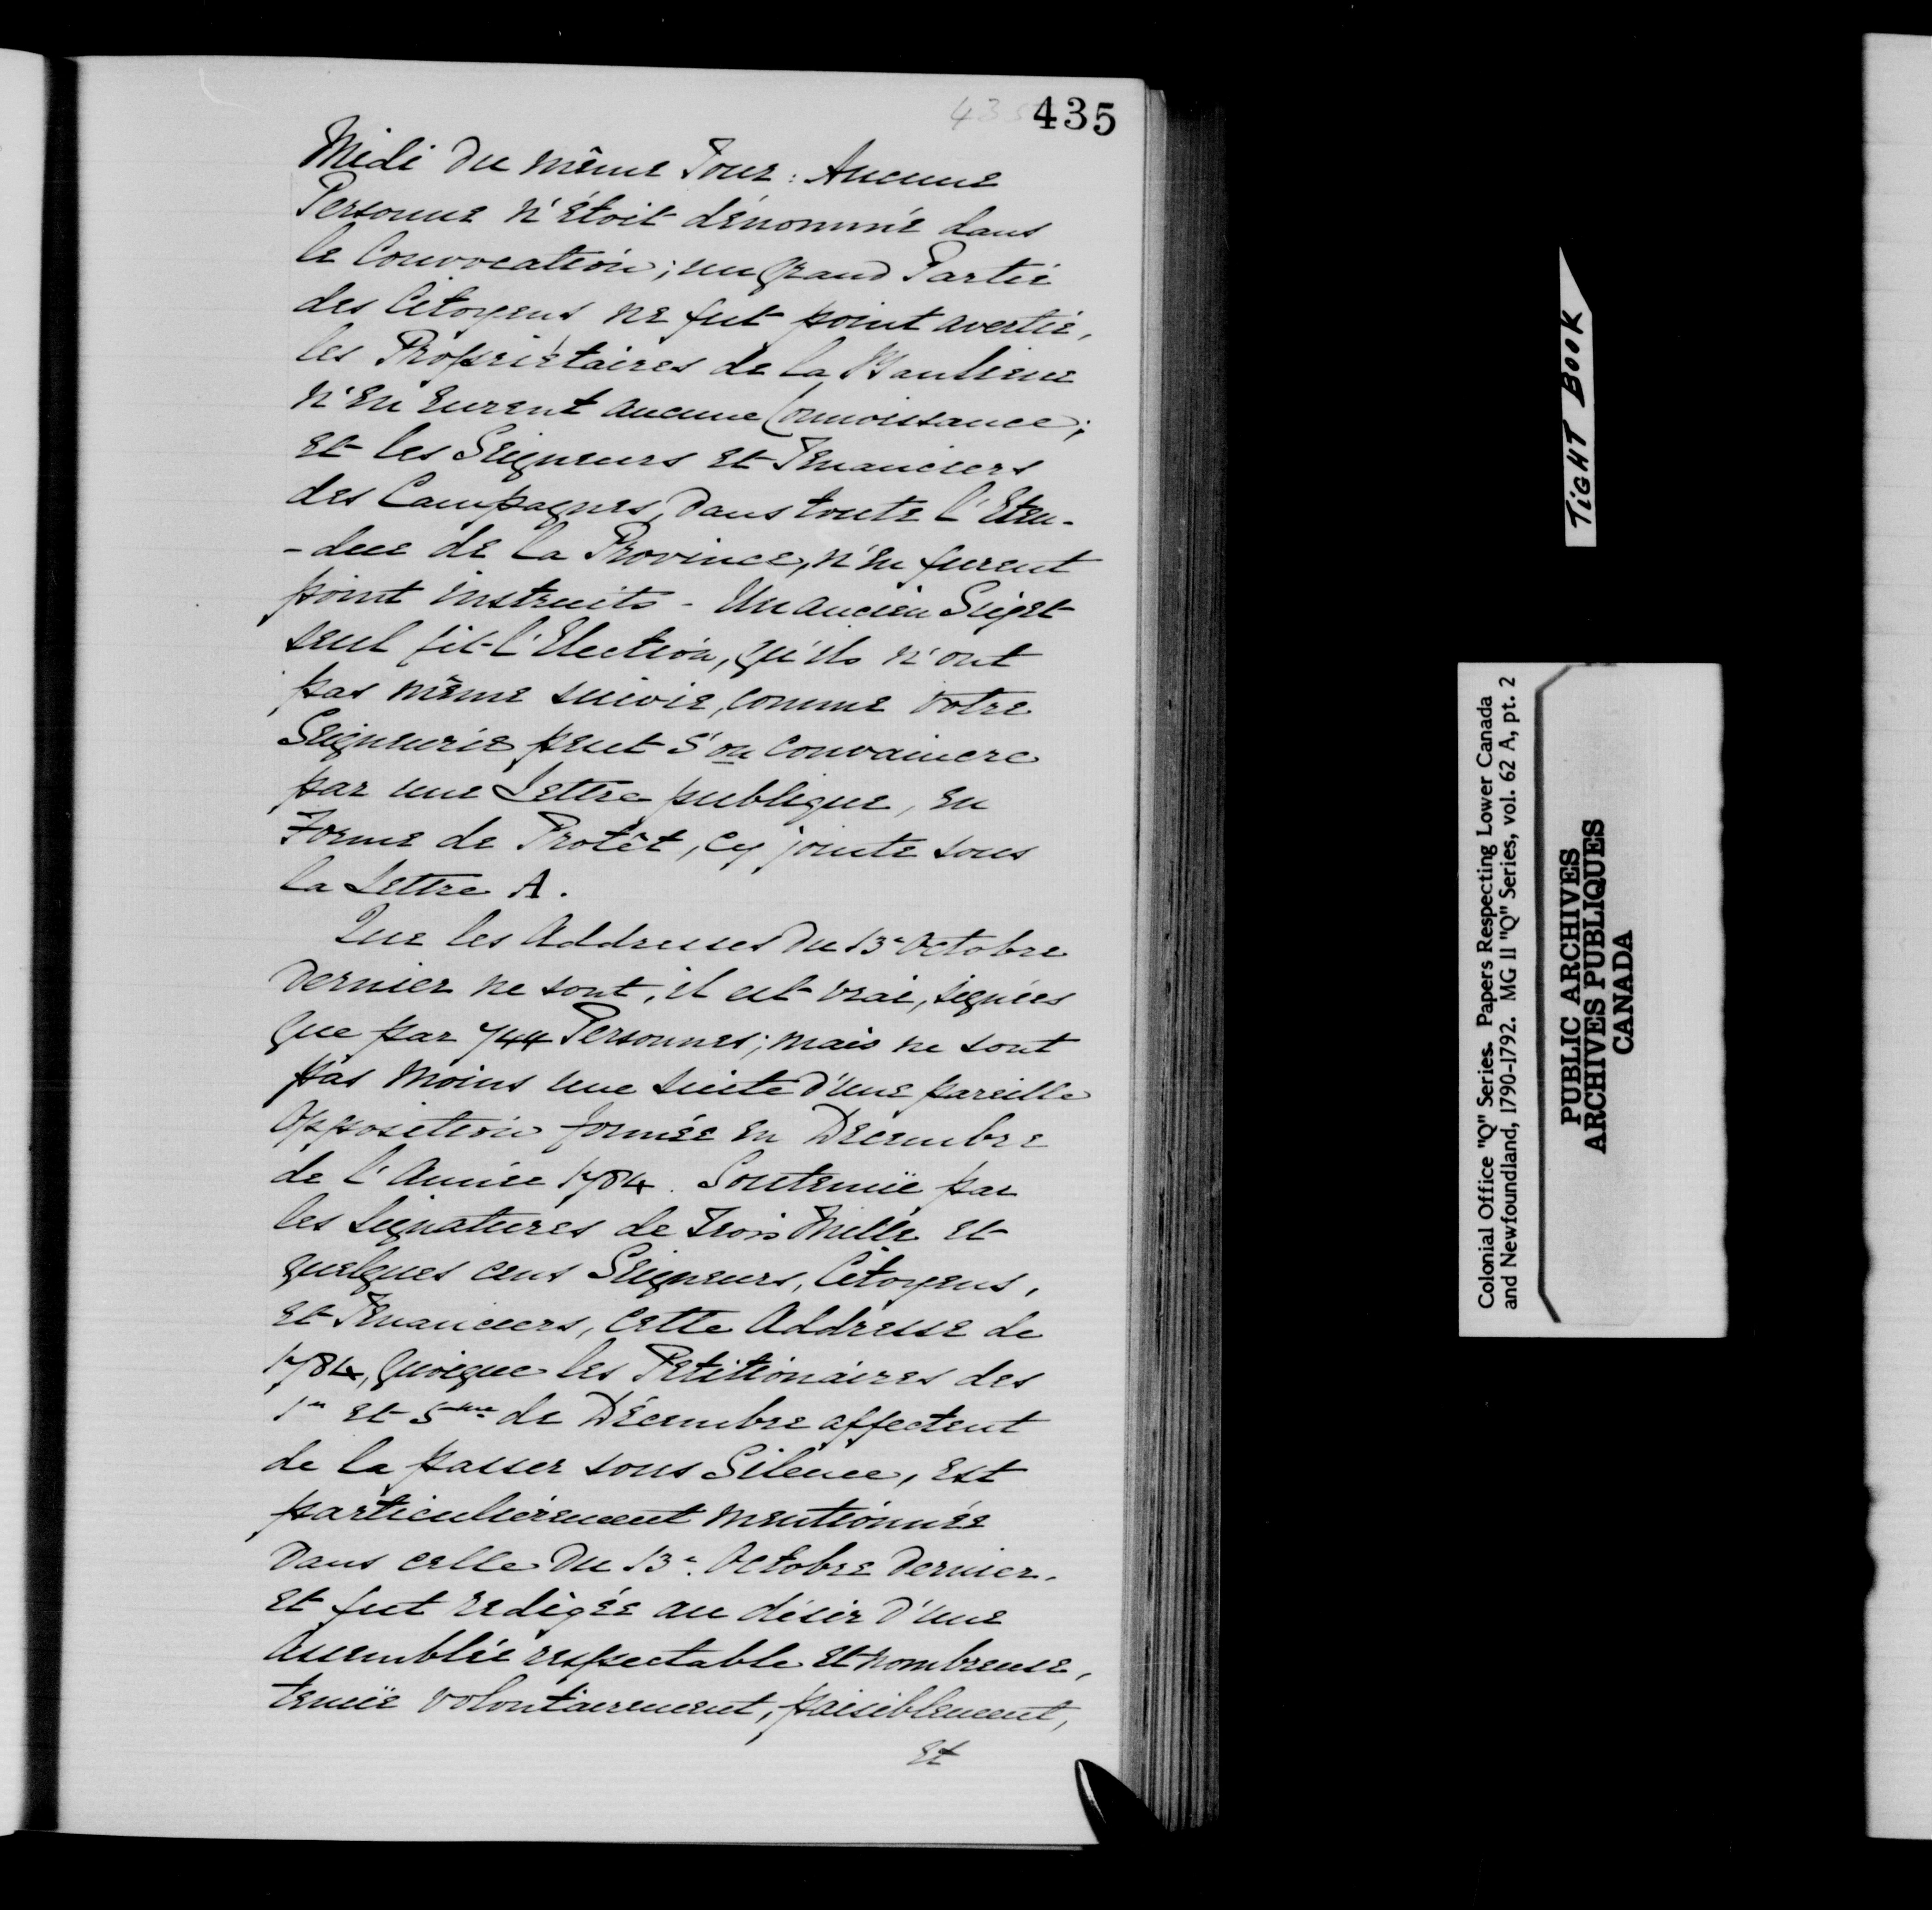 435 435
Midi du même Jour : Aucune
Personne n'étoit dénommé dans
la Convocation ; un grand Partie
des Citoyens ne fut point avertie,
les Propriétaires de la Banlieue
n'en eurent aucune Connoissance ;
et les Seigneurs et Tenanciers
des Campagnes, dans toute l'Eten-
-due de la Province, n'en furent
point instruits - Un ancien Sujet
seul fit l'Election, qu'ils n'ont
pas même suivie, comme Votre
Seigneurie peut s'on convaincre
par une Lettre publique, en
Forme de Protêt, cy jointe sous
la Lettre A.
Que les Addresses du 13e Octobre
Dernier ne sont, il est vrai, signées
que par 744 Personnes ; mais ne sont
pas moins une suite d'une pareille
Opposition formée en Décembre
de l'Année 1784. Soutenuë par
les signatures de Trois Mille et
quelques cens Seigneurs, Citoyens,
et Tenanciers, Cette Addresse de
1784, quoique les Petitionaires des
1er et 5me de Décembre affectent
de la passer sous Silence, est
particulièrement mentionnée
Dans celle du 13e. Octobre Dernier.
et fut redigée au désir d'une
Assemblée respectable et nombreuse,
tenuë volontairement, paisiblement,
et
TIGHT BOOK
Colonial Office "Q" Series. Papers Respecting Lower Canada
and Newfoundland, 1790-1792. MG 11 "Q" Series, vol. 62 A, pt. 2
PUBLIC ARCHIVES
ARCHIVES PUBLIQUES
CANADA